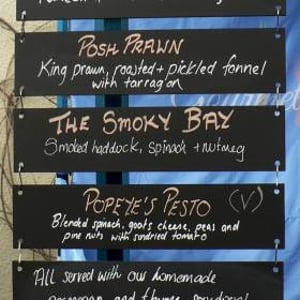 POSH PRAWN
King prawn, roasted + pickled fennel
with tarragon
THE SMOKY BAY
Smoked haddock, spinach + nutmeg
POPEYE'S PESTO (V)
Blended spinach, goats cheese, peas and
pine nuts with sundried tomato
All served with our homemade
parmesan and thyme